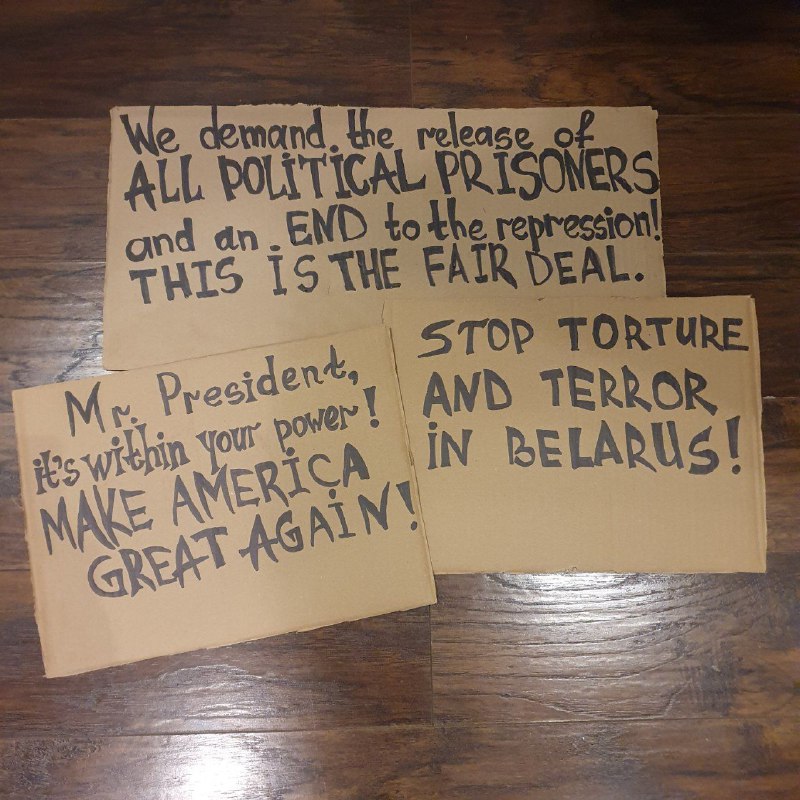 We demand the release of
ALL POLITICAL PRISONERS
and an END to the repression!
THIS IS THE FAIR DEAL.
Mr. President,
it's within your power!
MAKE AMERICA
GREAT AGAIN!
STOP TORTURE
AND TERROR
IN BELARUS!